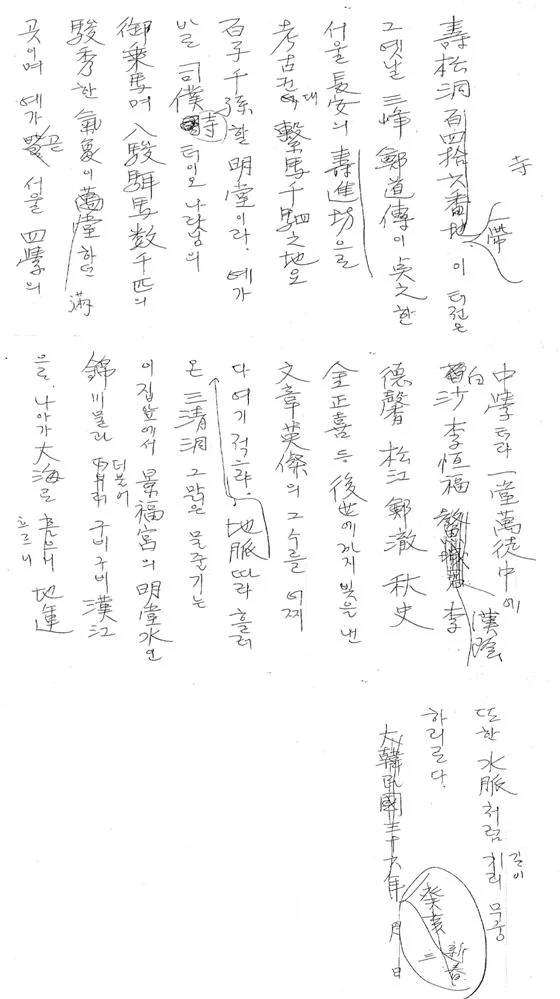 寺
一帶
壽松洞 百四拾六番地 이 터전은
그 옛날 三峰 鄭道傳이
서울 長安의 壽進坊으로
考古컨대 繫馬千駟之地요
百子千孫할 明堂이라. 예가
바로 司僕寺 터이오 나라님의
御乘馬며 八駿騈馬 数千匹의
駿秀한 氣象이 萬堂하던 滿
곳이며 예가 곧 서울 四學의
中學터라 一堂萬徒中에
白沙 李恒福 漢陰 李
德馨 松江 鄭澈 秋史
金正喜 등 後世에까지 빛을 낸
文章英傑의 그 수를 어찌
다 여기 적으랴. 地脈따라 흘러
온 三淸洞 그 맑은 물줄기는
이 집앞에서 景福宮의 明堂水인
錦川물과 더불어 구비구비 漢江
으로, 나아가 大海로 흐르니 地運
또한 水脈처럼 길이 무궁
하리로다.
大韓民國三十六年 月 日
癸亥 三 新春